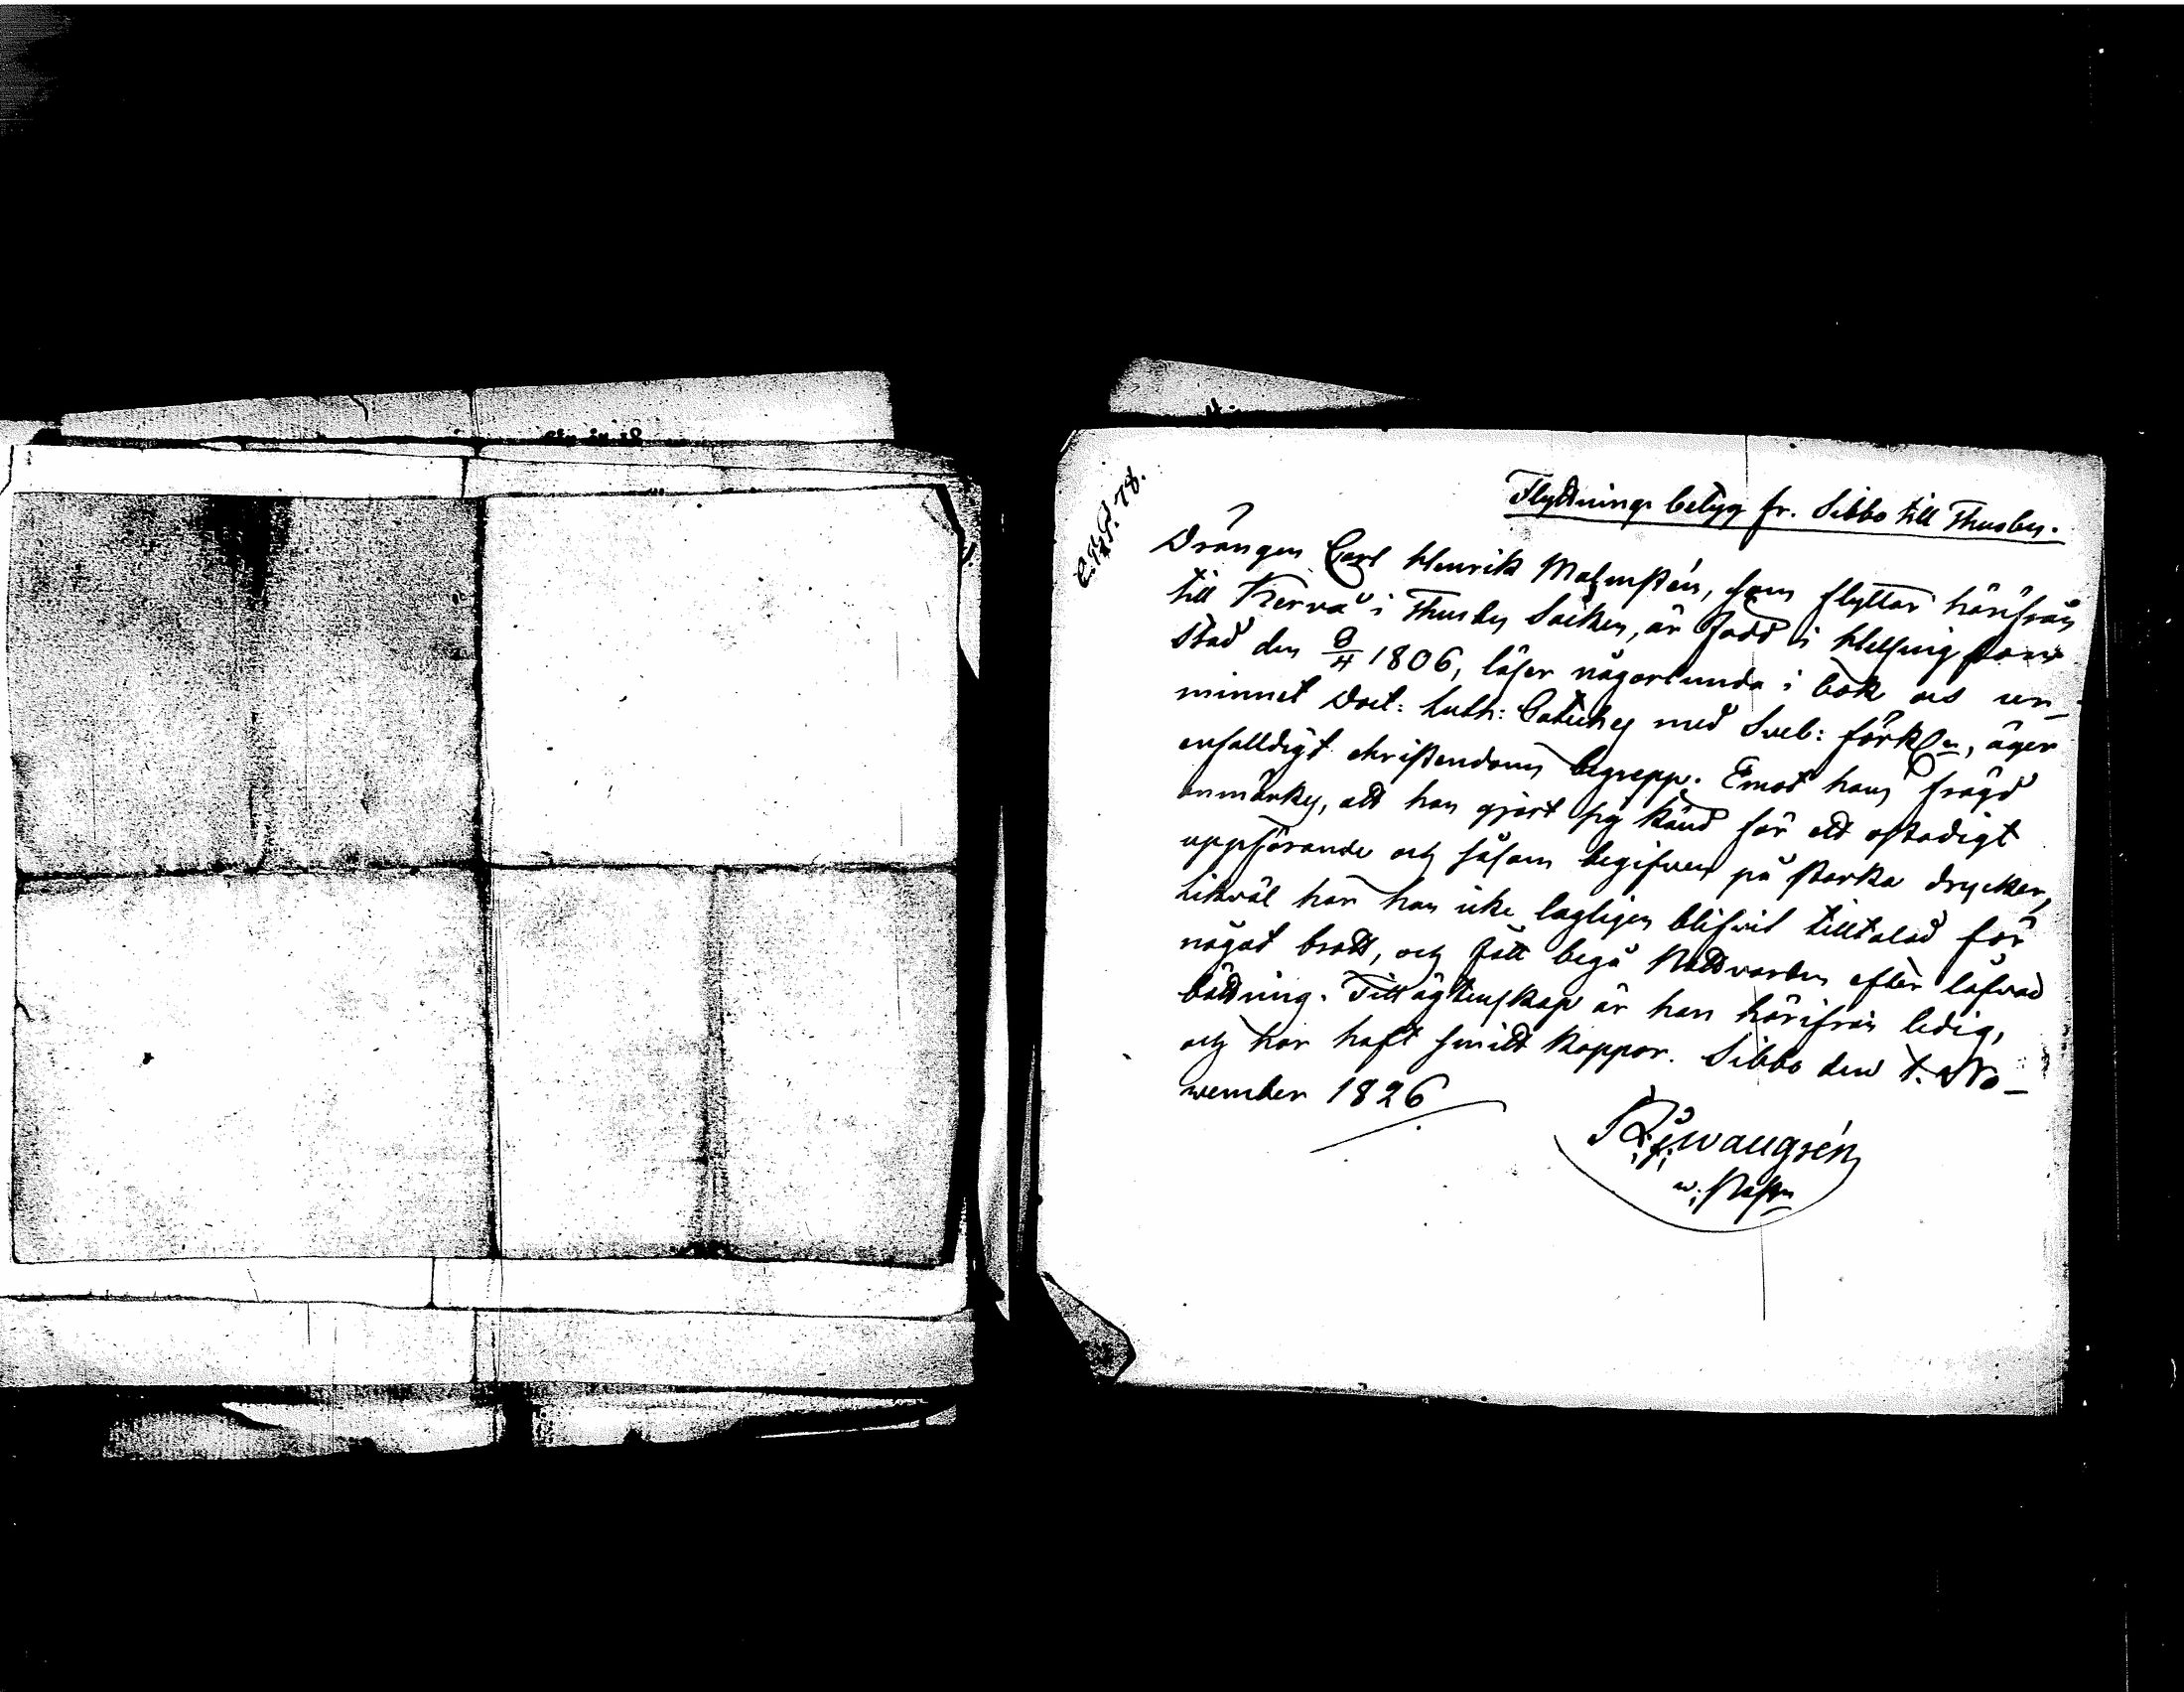 Flyttnings betyg fr. Sibbo till Thusby.
Drängen Carl Henrik Malmstén, som flyttar härifrån
till Kervå i Thusby Socken, är född i Helsingfors
stad den 9/4 1806, läser någorlunda i bok och ur
minnet Doct: Luth: Cateches med Sveb: förkln, äger
enfalldigt christendoms begrepp. Emot hans frägd
anmärkes, att han gjort sig känd för ett ostadigt
uppförande och såsom begifven på starka drycker,
likväl har han icke lagligen blifvit tilltalad för
något brott, och fått begå Nattvarden efter låfvad
bättring. Till ägtenskap är han härifrån ledig,
och har haft smitt koppor. Sibbo den 1. No-
vember 1826